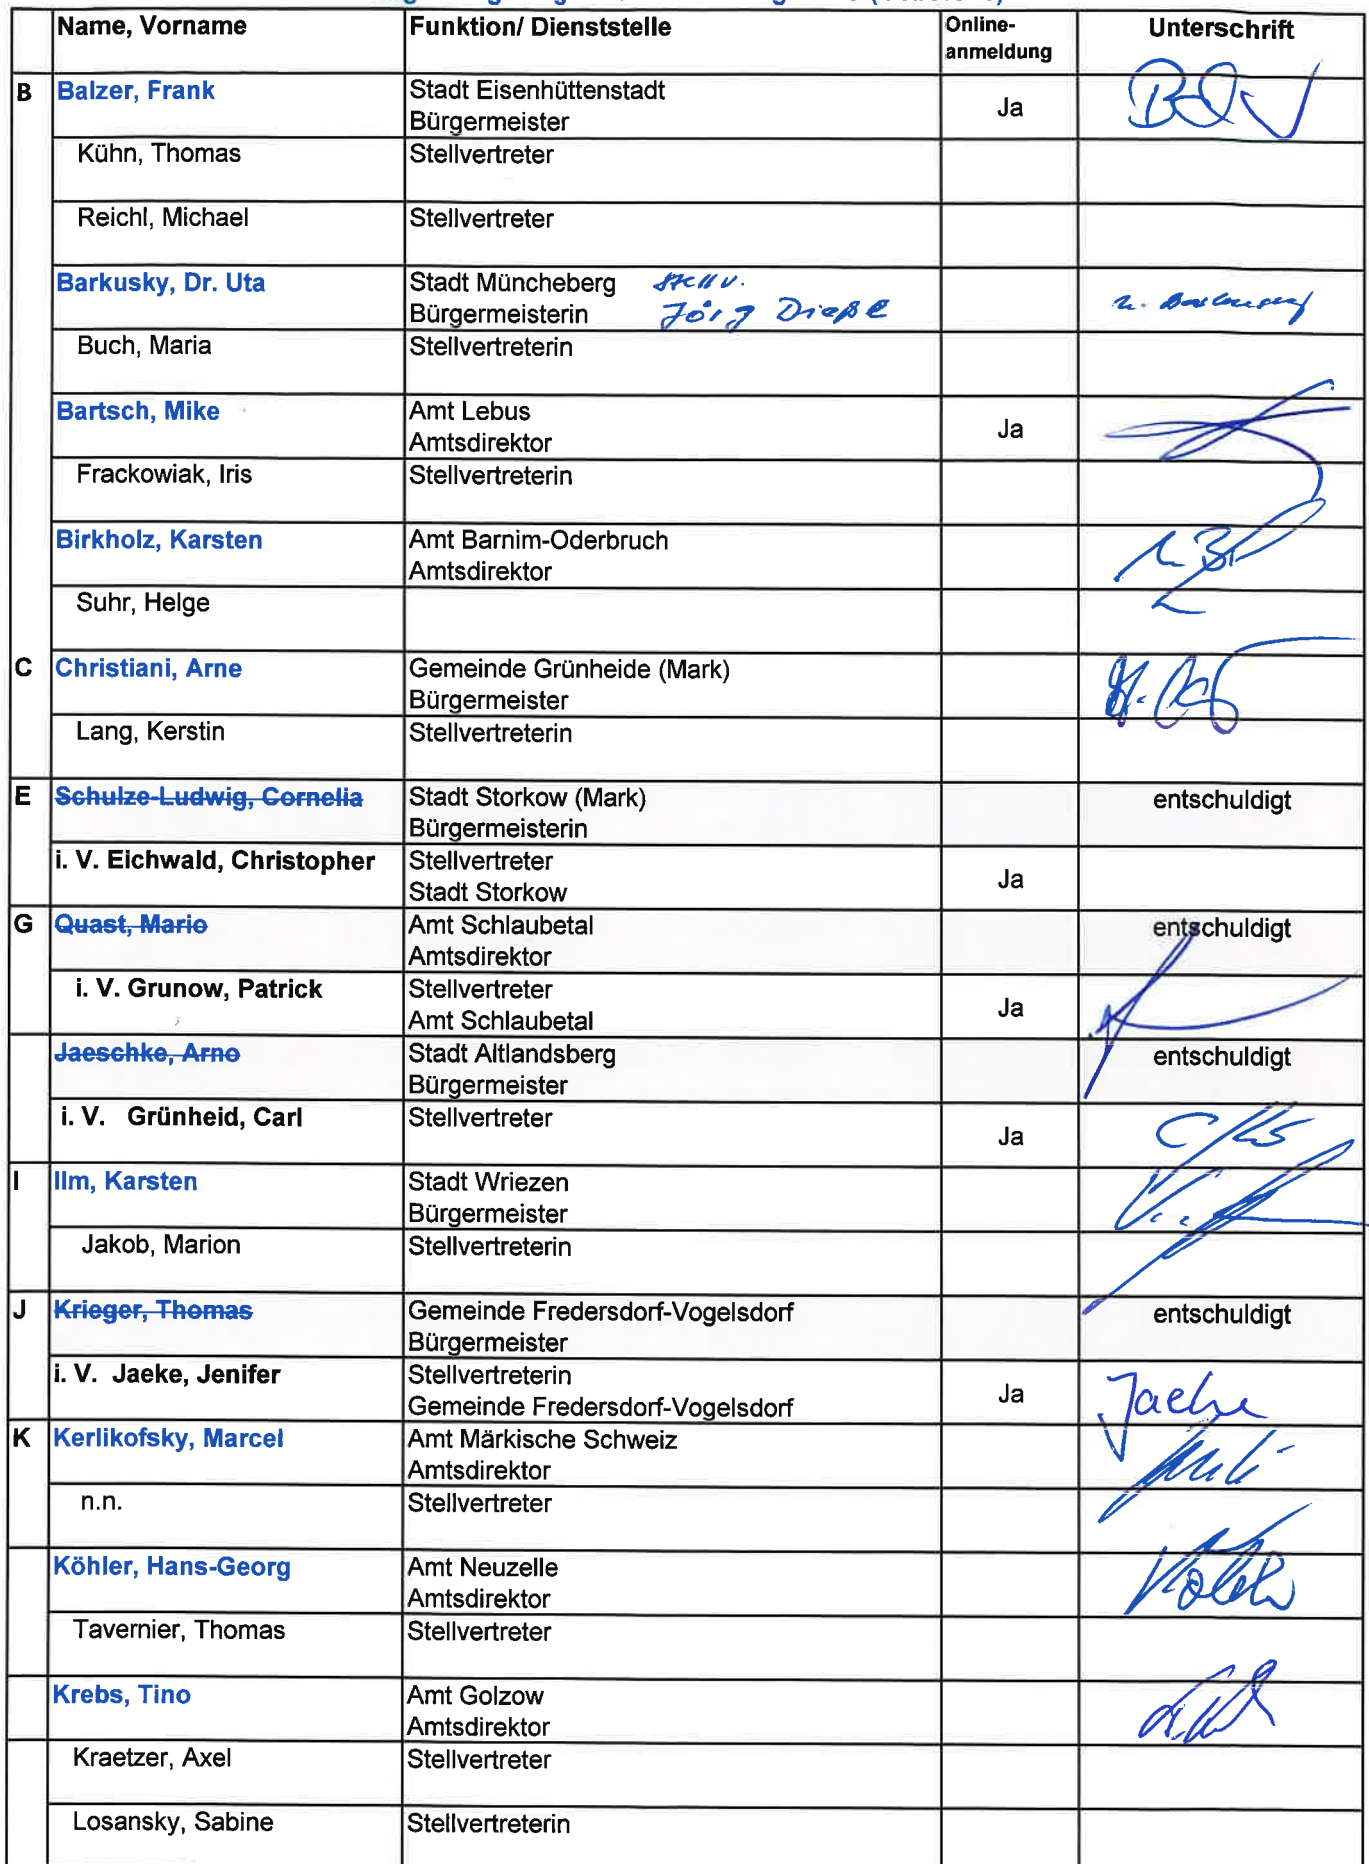 Name, Vorname Funktion/ Dienststelle Online-anmeldung Unterschrift
B Balzer, Frank Stadt Eisenhüttenstadt
Bürgermeister Ja
Kühn, Thomas Stellvertreter
Reichl, Michael Stellvertreter
Barkusky, Dr. Uta Stadt Müncheberg stellv.
Bürgermeisterin Jörg Dieße u. Barkusky
Buch, Maria Stellvertreterin
Bartsch, Mike Amt Lebus
Amtsdirektor Ja
Frackowiak, Iris Stellvertreterin
Birkholz, Karsten Amt Barnim-Oderbruch
Amtsdirektor
Suhr, Helge
C Christiani, Arne Gemeinde Grünheide (Mark)
Bürgermeister
Lang, Kerstin Stellvertreterin
E Schulze-Ludwig, Cornelia Stadt Storkow (Mark) entschuldigt
Bürgermeisterin
i. V. Eichwald, Christopher Stellvertreter
Stadt Storkow Ja
G Quast, Mario Amt Schlaubetal entschuldigt
Amtsdirektor
i. V. Grunow, Patrick Stellvertreter
Amt Schlaubetal Ja
Jaeschke, Arno Stadt Altlandsberg entschuldigt
Bürgermeister
i. V. Grünheid, Carl Stellvertreter
Ja
I Ilm, Karsten Stadt Wriezen
Bürgermeister
Jakob, Marion Stellvertreterin
J Krieger, Thomas Gemeinde Fredersdorf-Vogelsdorf entschuldigt
Bürgermeister
i. V. Jaeke, Jenifer Stellvertreterin
Gemeinde Fredersdorf-Vogelsdorf Ja Jaeke
K Kerlikofsky, Marcel Amt Märkische Schweiz
Amtsdirektor
n.n. Stellvertreter
Köhler, Hans-Georg Amt Neuzelle
Amtsdirektor Köhler
Tavernier, Thomas Stellvertreter
Krebs, Tino Amt Golzow
Amtsdirektor
Kraetzer, Axel Stellvertreter
Losansky, Sabine Stellvertreterin